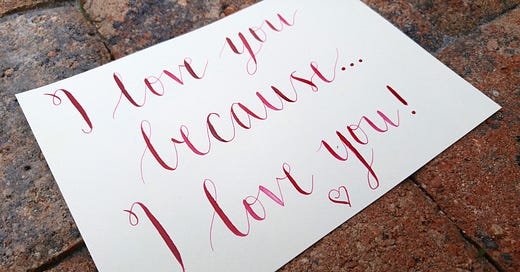 I love you
because...
I love you!